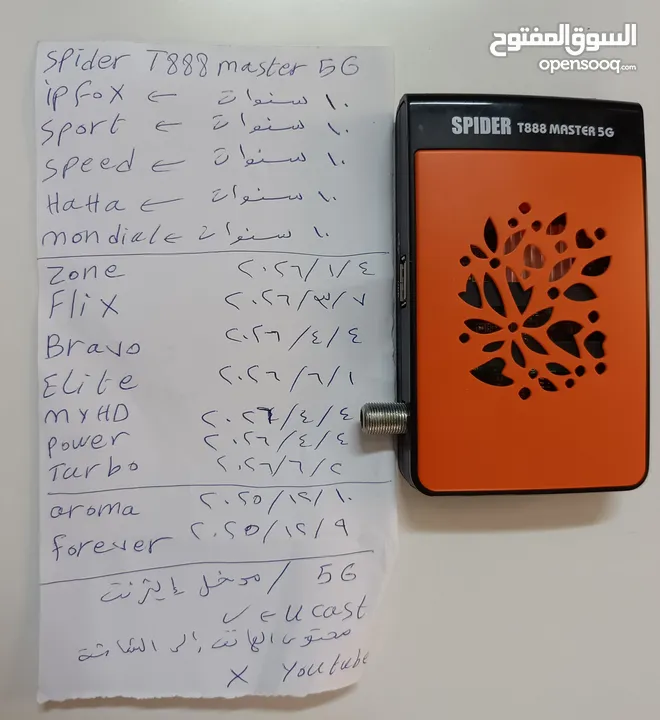 السوق المفتوح
opensooq.com
SPIDER T888 MASTER 5G
Spider T888 master 5G
ipfox ← ١٠ سنوات
Sport ← ١٠ سنوات
Speed ← ١٠ سنوات
HaHa ← ١٠ سنوات
mondial ← ١٠ سنوات
Zone ٢٠٢٦/١/٤
Flix ٢٠٢٦/٣/٧
Bravo ٢٠٢٦/٤/٤
Elite ٢٠٢٦/٦/١
MYHD ٢٠٢٦/٤/٤
Power ٢٠٢٦/٤/٤
Turbo ٢٠٢٦/٦/٢
aroma ٢٠٢٥/١٢/١٠
forever ٢٠٢٥/١٢/٩
5G / مدخل إنترنت
✓ ← Ucast
محتوى الهاتف إلى الشاشة
X Youtube